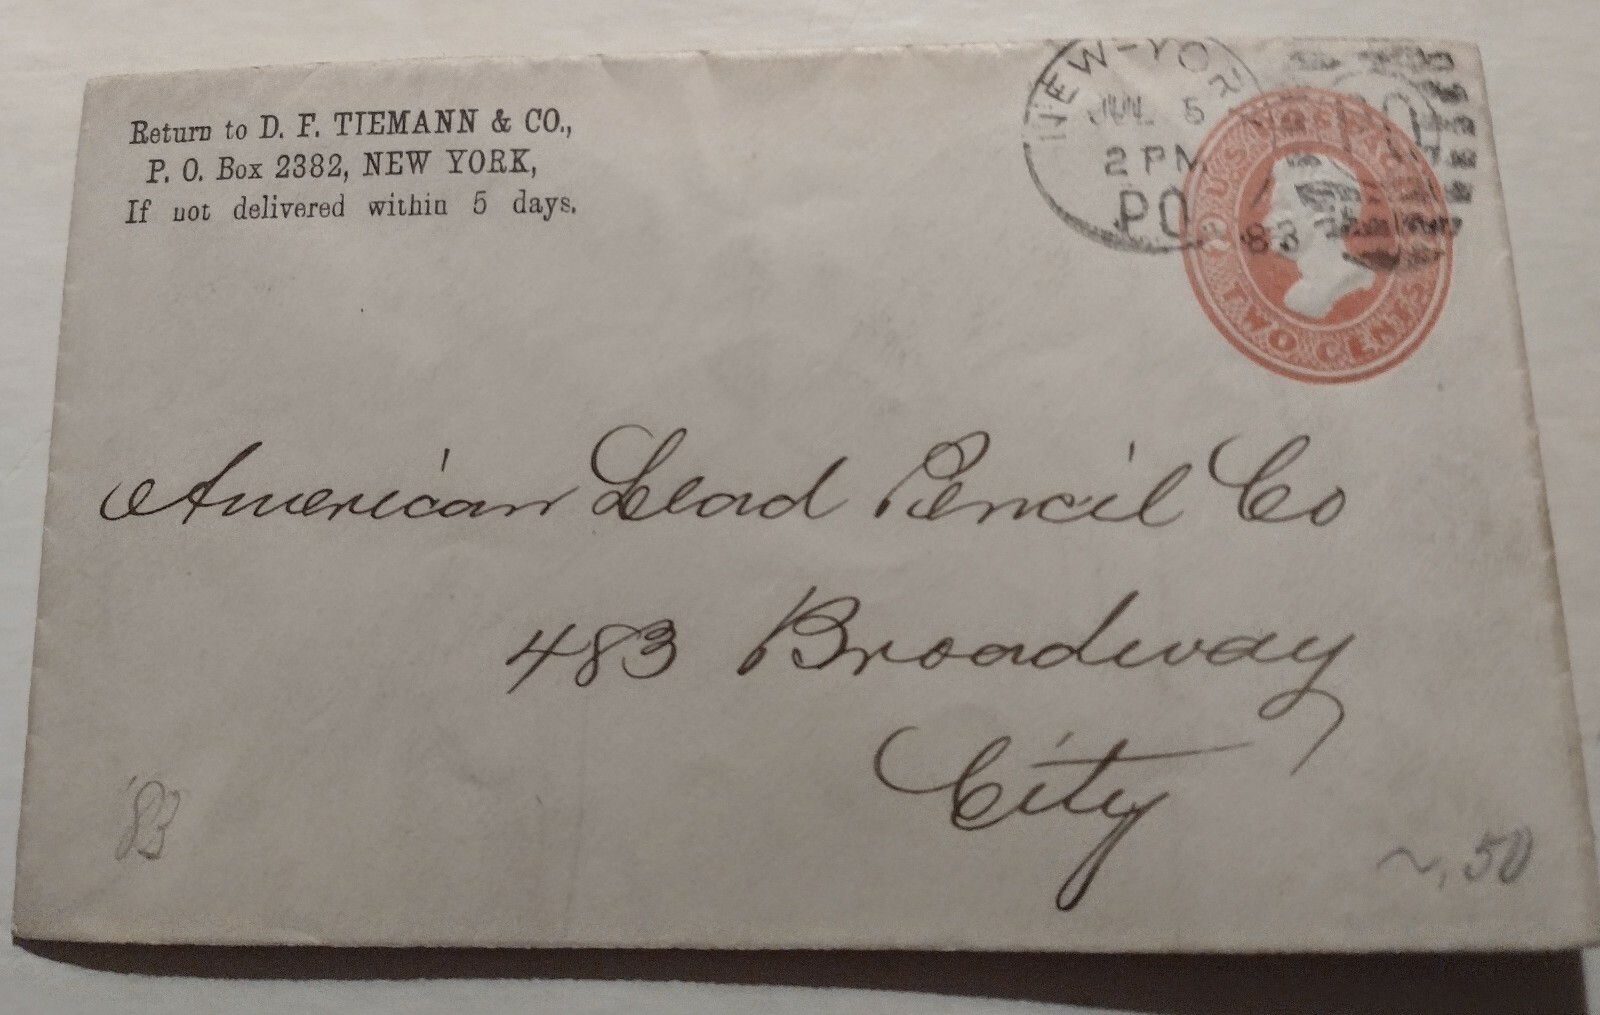 Return to D. F. TIEMANN & CO.,
P. O. Box 2382, NEW YORK,
If not delivered within 5 days.
NEW-YOR
JUL 5
2 PM
PO
83
U.S. POSTAGE
TWO CENTS
American Lead Pencil Co
483 Broadway
City
'83
.50